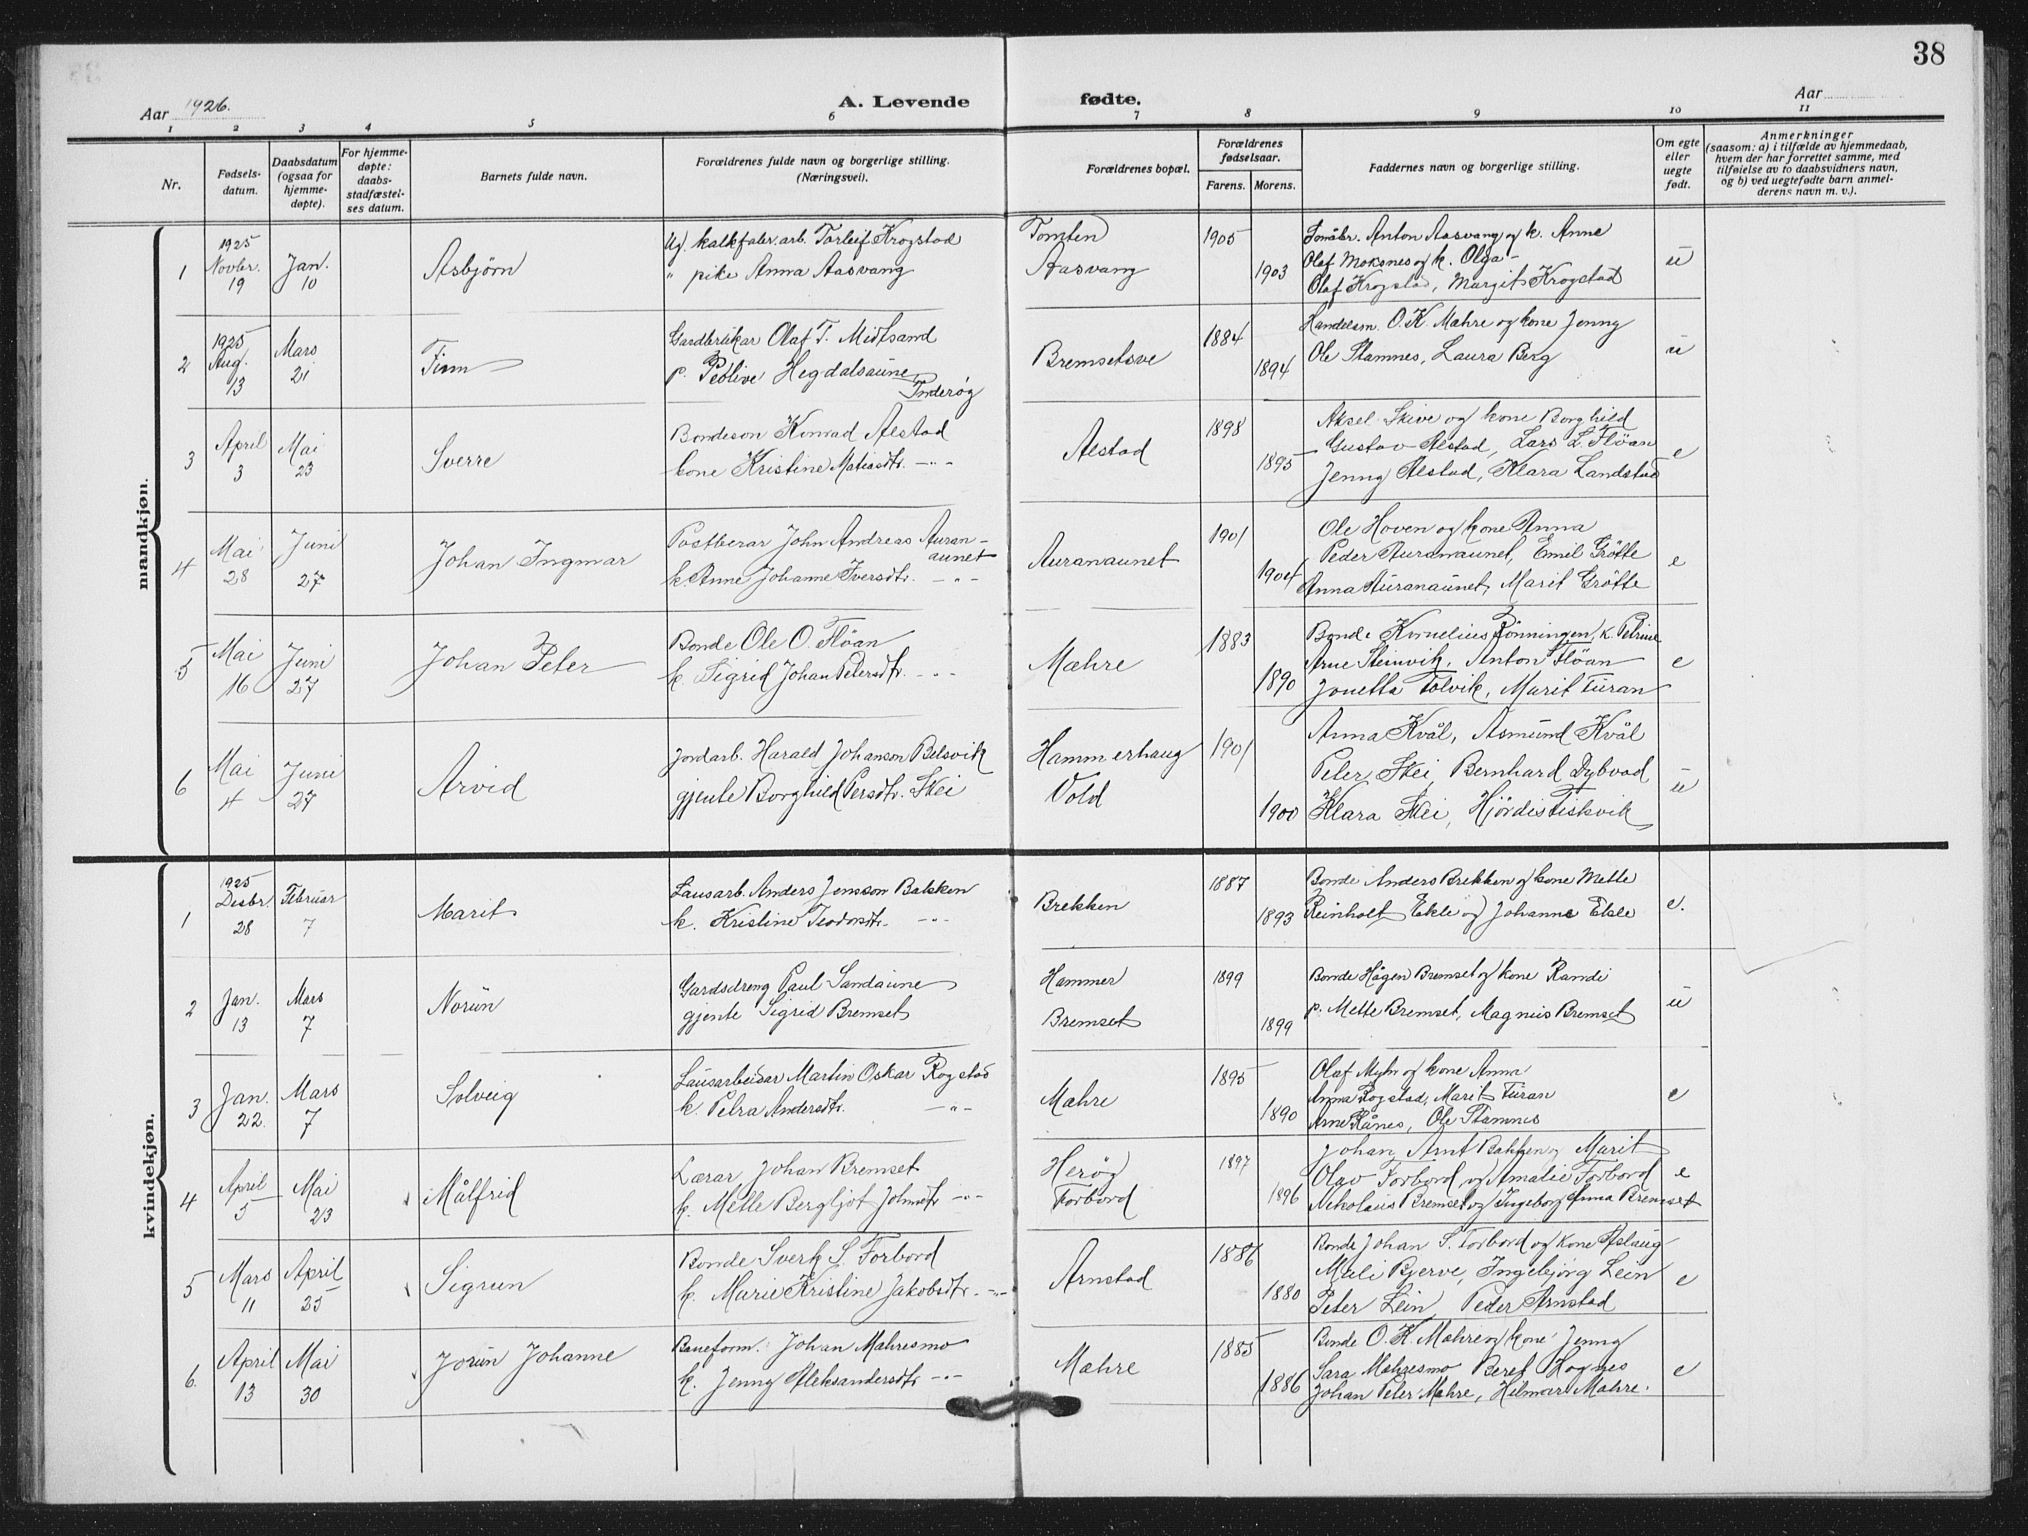 38
Aar 1926.
A. Levende fødte.
Aar
1 2 3 4 5 6 7 8 9 10 11
Nr.
Fødsels-
datum.
Daabsdatum
(ogsaa for
hjemme-
døpte).
For hjemme-
døpte:
daabs-
stadfæstel-
ses datum.
Barnets fulde navn.
Forældrenes fulde navn og borgerlige stilling.
(Næringsvei).
Forældrenes bopæl.
Forældrenes
fødselsaar.
Farens. Morens.
Faddernes navn og borgerlige stilling.
Om egte
eller
uegte
født.
Anmerkninger
(saasom: a) i tilfælde av hjemmedaab,
hvem der har forrettet samme, med
tilføielse av to daabsvidners navn,
og b) ved uegtefødte barn anmel-
derens navn m. v.).
mandkjøn.
1 1925 Novbr. 19 Jan. 10 Asbjörn
Ug. kalkfabr. arb. Torleif Krogstad
" pike Anna Aasvang
Tomten
Aasvang
1905 1903
Anton Aasvang og k. Anne
Olaf Moksnes og k. Olga
Olaf Krogstad, Margit Krogstad
u
2 1925 Aug. 13 Mars 21 Finn
Gardbrukar Olaf T. Midtsand
p. Peolive Hegdalsaune
Inderøy
Bremsetsve
1884 1894
Handelsm. O. K. Mæhre og kone Jenny
Ole Stamnes, Laura Berg
u
3 April 3 Mai 23 Sverre
Bondeson Konrad Alstad
kone Kristine Matiasdtr. -"-
Alstad
1898 1895
Aksel Skive og kone Borghild
Gustav Alstad, Lars L. Flöan
Jenny Alstad, Klara Landstad
e
4 Mai 28 Juni 27 Johan Ingmar
Postberar John Andreas Auran-
aunet
k. Anne Johanne Iversdtr. -"-
Auranaunet
1901 1904
Ole Hoven og kone Anna
Peder Auranaunet, Emil Grötte
Anna Auranaunet, Marit Grötte
e
5 Mai 16 Juni 27 Johan Peter
Bonde Ole O. Flöan
k. Sigrid Johan Petersdtr. -"-
Mæhre
1883 1890
Bonde Kornelius Rönningen, k. Petrine
Arne Steinvik, Anton Flöan
Jonetta Tolvik, Marit Turan
e
6 Mai 4 Juni 27 Arvid
Jordarb. Harald Johanson Belsvik
gjente Borghild Persdtr. Skei
Hammerhaug
Vold
1901 1900
Anna Kvål, Asmund Kvål
Peter Skei, Bernhard Dybvad
Klara Skei, Hjördis Fiskvik
u
kvindekjøn.
1 1925 Desbr. 28 Februar 7 Marit
Lausarb. Anders Jensson Bakken
k. Kristine Teodorsdtr. -"-
Brekken
1887 1893
Bonde Anders Brekken og kone Mette
Reinholt Ekle og Johanne Ekle
e.
2 Jan. 13 Mars 7 Norun
Gardsdreng Paul Sandaune
gjente Sigrid Bremset
Hammer
Bremset
1899 1899
Bonde Hågen Bremset og kone Randi
p. Mette Bremset, Magnus Bremset
u
3 Jan. 22. Mars 7 Solveig
Lausarbeidar Martin Oskar Rogstad
k. Petra Andersdtr. -"-
Mæhre
1895 1890
Olaf Myhr og kone Anna
Anna Rogstad, Marit Turan
Arne Rånes, Ole Stamnes
e
4 April 5 Mai 23 Målfrid
Lærar Johan Bremset
k. Mette Bergljot Johnsdtr -"-
Heröy
Forbord
1897 1896
Johan Arnt Bakken og Marit
Olav Forbord og Amalie Forbord
Nikolaus Bremset og Ingeborg Anna Bremset
e
5 Mars 11 April 25 Sigrun
Bonde Sverk S. Forbord
k. Marie Kristine Jakobsdtr. -"-
Arnstad
1886 1880
Bonde Johan S. Forbord og kone Aslaug
Muli Bjerve, Ingebjörg Lein
Peter Lein, Peder Arnstad
e
6. April 13 Mai 30 Jorun Johanne
Baneform. Johan Mæhresmo
k. Jenny Aleksandersdtr -"-
Mæhre
1885 1886
Bonde O. K. Mæhre og kone Jenny
Sara Mæhresmo Beret Hognes
Johan Peter Mæhre, Hilmar Mæhre.
e